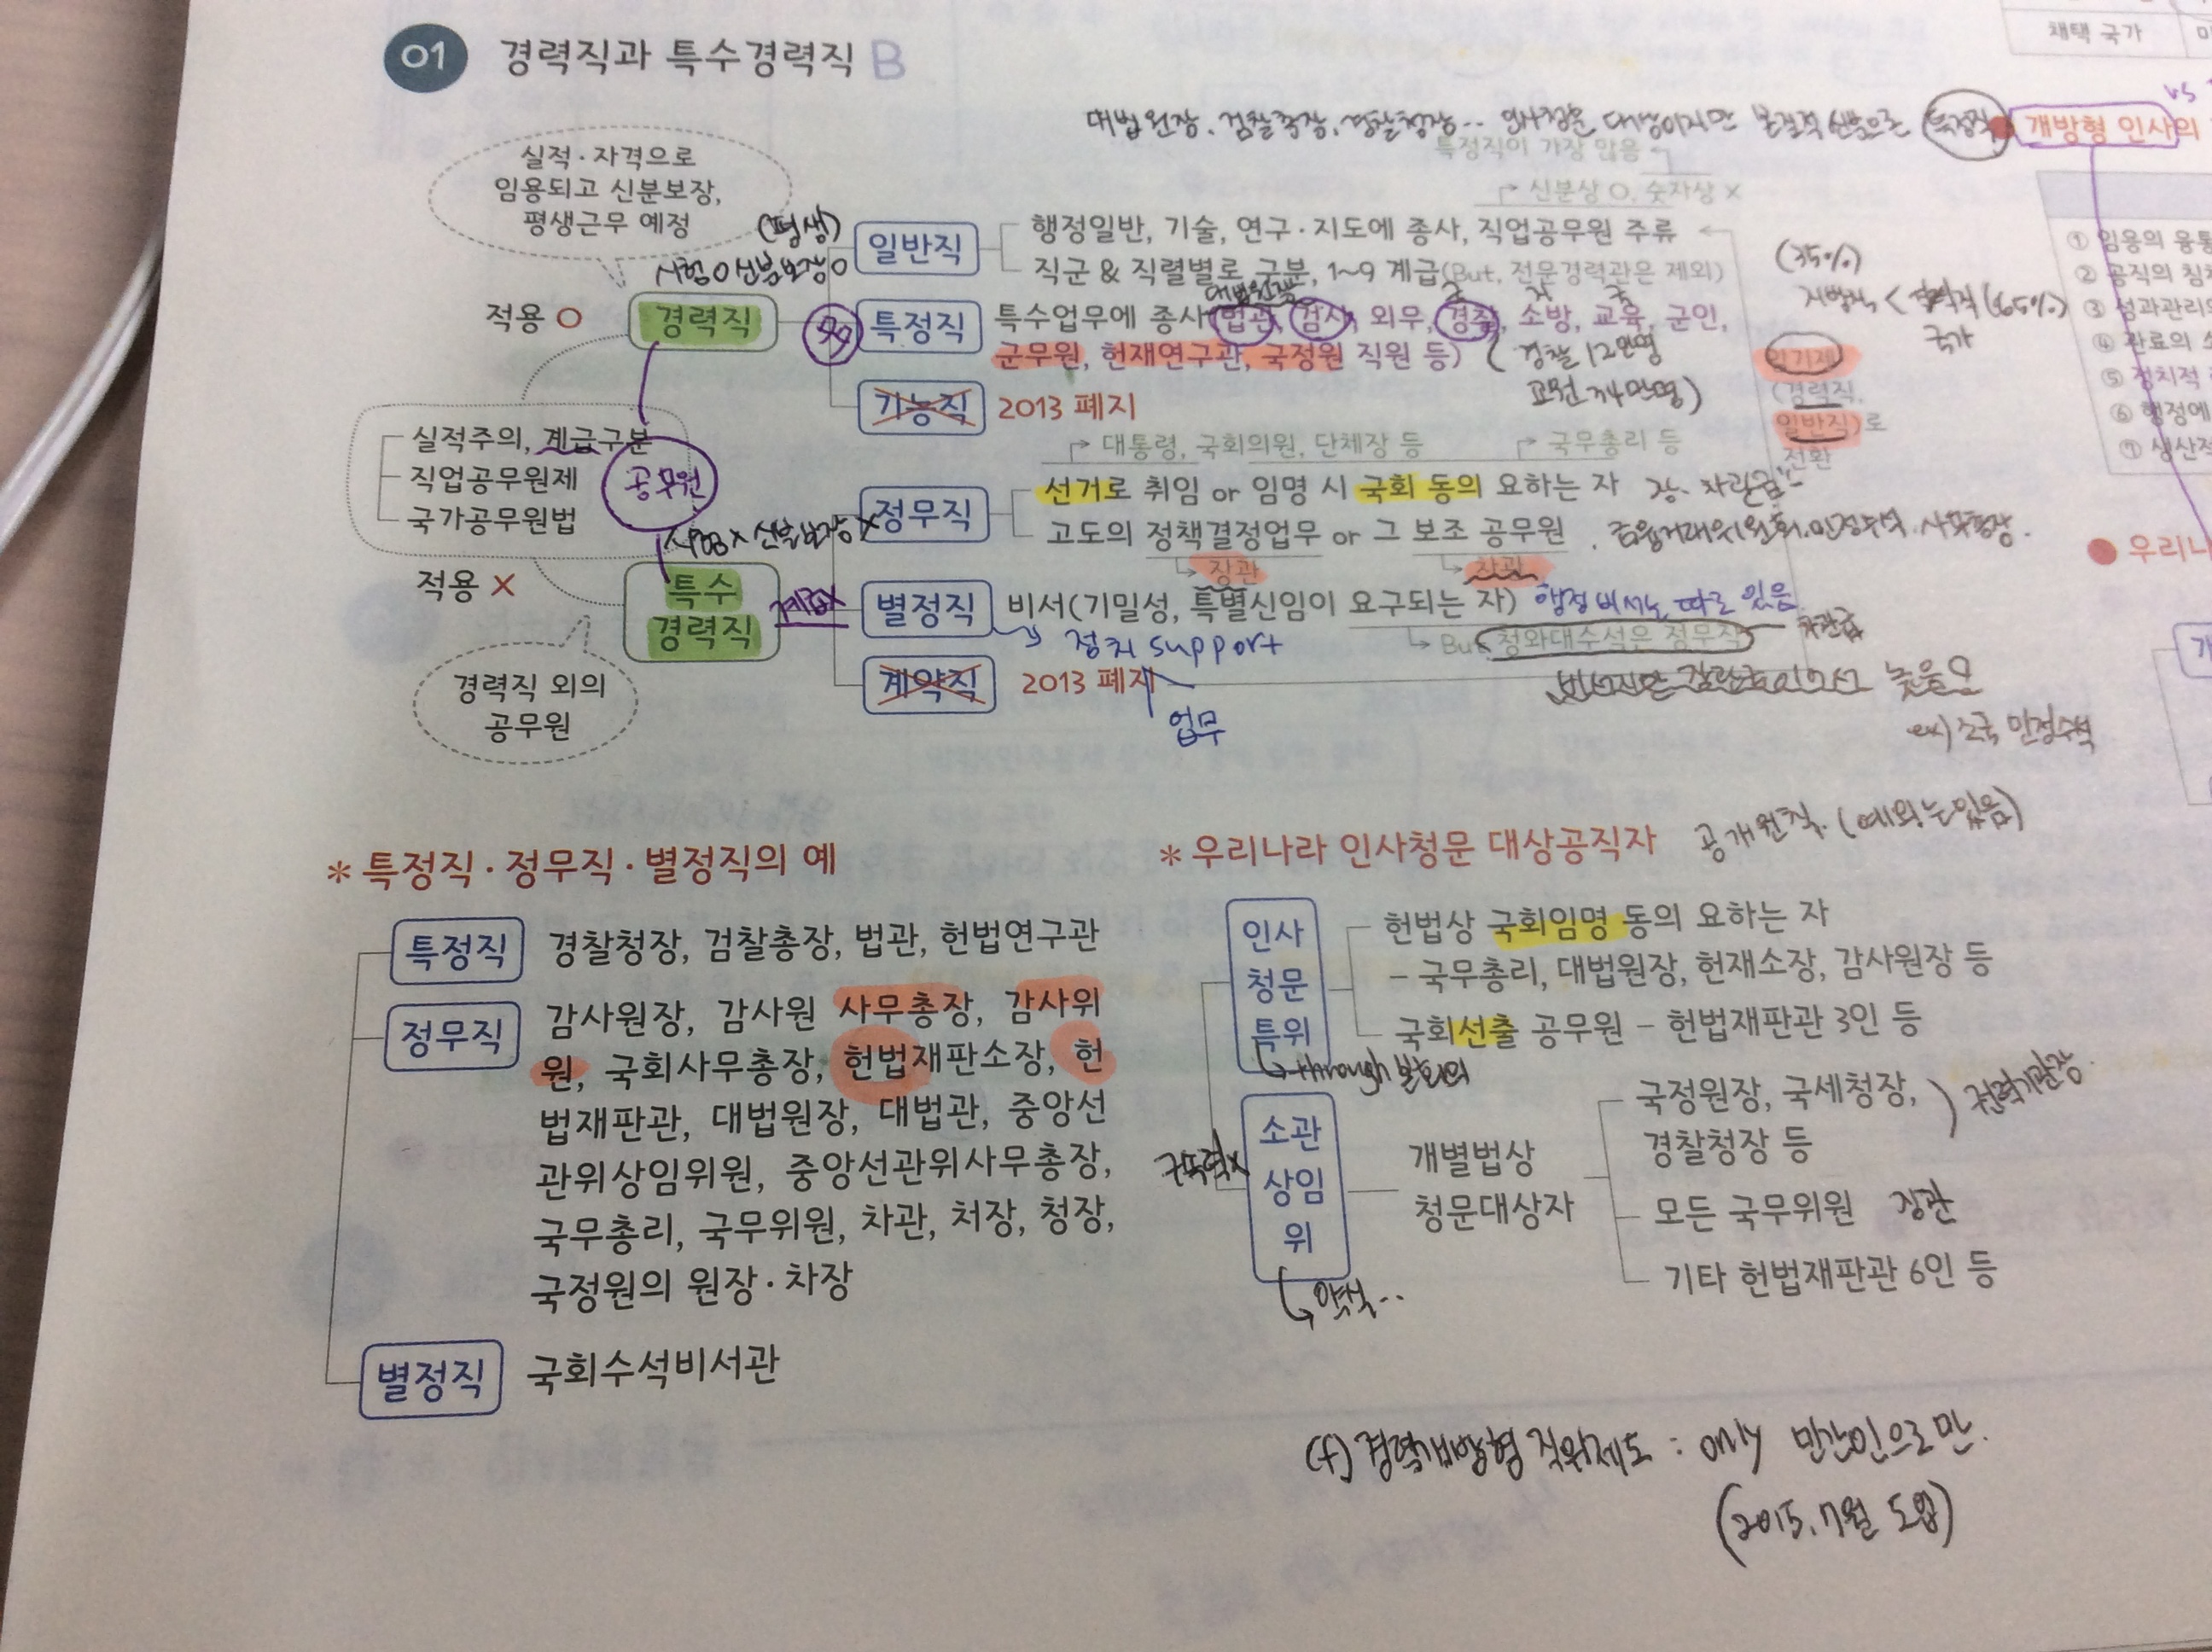 01 경력직과 특수경력직 B
채택 국가
대법원장, 검찰총장, 경찰청장.. 인사청문 대상이지만 특정직
개방형 인사의
vs
특정직이 가장 많음
신분상 O, 숫자상 X
실적·자격으로
임용되고 신분보장,
평생근무 예정
(평생)
시험 O 신분보장 O
일반직
행정일반, 기술, 연구·지도에 종사, 직업공무원 주류
직군 & 직렬별로 구분, 1~9 계급(But, 전문경력관은 제외)
적용 O
경력직
대법원장
특정직
특수업무에 종사 법관, 검사, 외무, 경찰, 소방, 교육, 군인,
군무원, 헌재연구관, 국정원 직원 등)
(경찰 12만명
교원 34만명)
(35%)
지방직 < (65%)
국가
기능직 2013 폐지
임기제
(경력직,
일반직)로
전환
① 임용의 융통
② 공직의 침체
③ 성과관리
④ 관료의 소
⑤ 정치적
⑥ 행정에
⑦ 생산적
실적주의, 계급구분
직업공무원제
국가공무원법
공무원
대통령, 국회의원, 단체장 등
국무총리 등
정무직
선거로 취임 or 임명 시 국회 동의 요하는 자 장·차관급
고도의 정책결정업무 or 그 보조 공무원
장관
차관
시험 X 신분보장 X
적용 X
특수
경력직
계급X
별정직
비서(기밀성, 특별신임이 요구되는 자) 행정비서는 따로 있음
정치 support
But 청와대수석은 정무직
차관급
계약직 2013 폐지
업무
높음
ex) 조국 민정수석
경력직 외의
공무원
우리나
* 특정직·정무직·별정직의 예
특정직
경찰청장, 검찰총장, 법관, 헌법연구관
정무직
감사원장, 감사원 사무총장, 감사위
원, 국회사무총장, 헌법재판소장, 헌
법재판관, 대법원장, 대법관, 중앙선
관위상임위원, 중앙선관위사무총장,
국무총리, 국무위원, 차관, 처장, 청장,
국정원의 원장·차장
별정직
국회수석비서관
* 우리나라 인사청문 대상공직자 공개원칙. (예외는 있음)
인사
청문
특위
헌법상 국회임명 동의 요하는 자
- 국무총리, 대법원장, 헌재소장, 감사원장 등
국회선출 공무원 - 헌법재판관 3인 등
through 본회의
구속력X
소관
상임
위
개별법상
청문대상자
국정원장, 국세청장,
경찰청장 등
권력기관장
모든 국무위원 장관
기타 헌법재판관 6인 등
(f) 경력개방형 직위제도 : only 민간인으로만.
(2015.7월 도입)